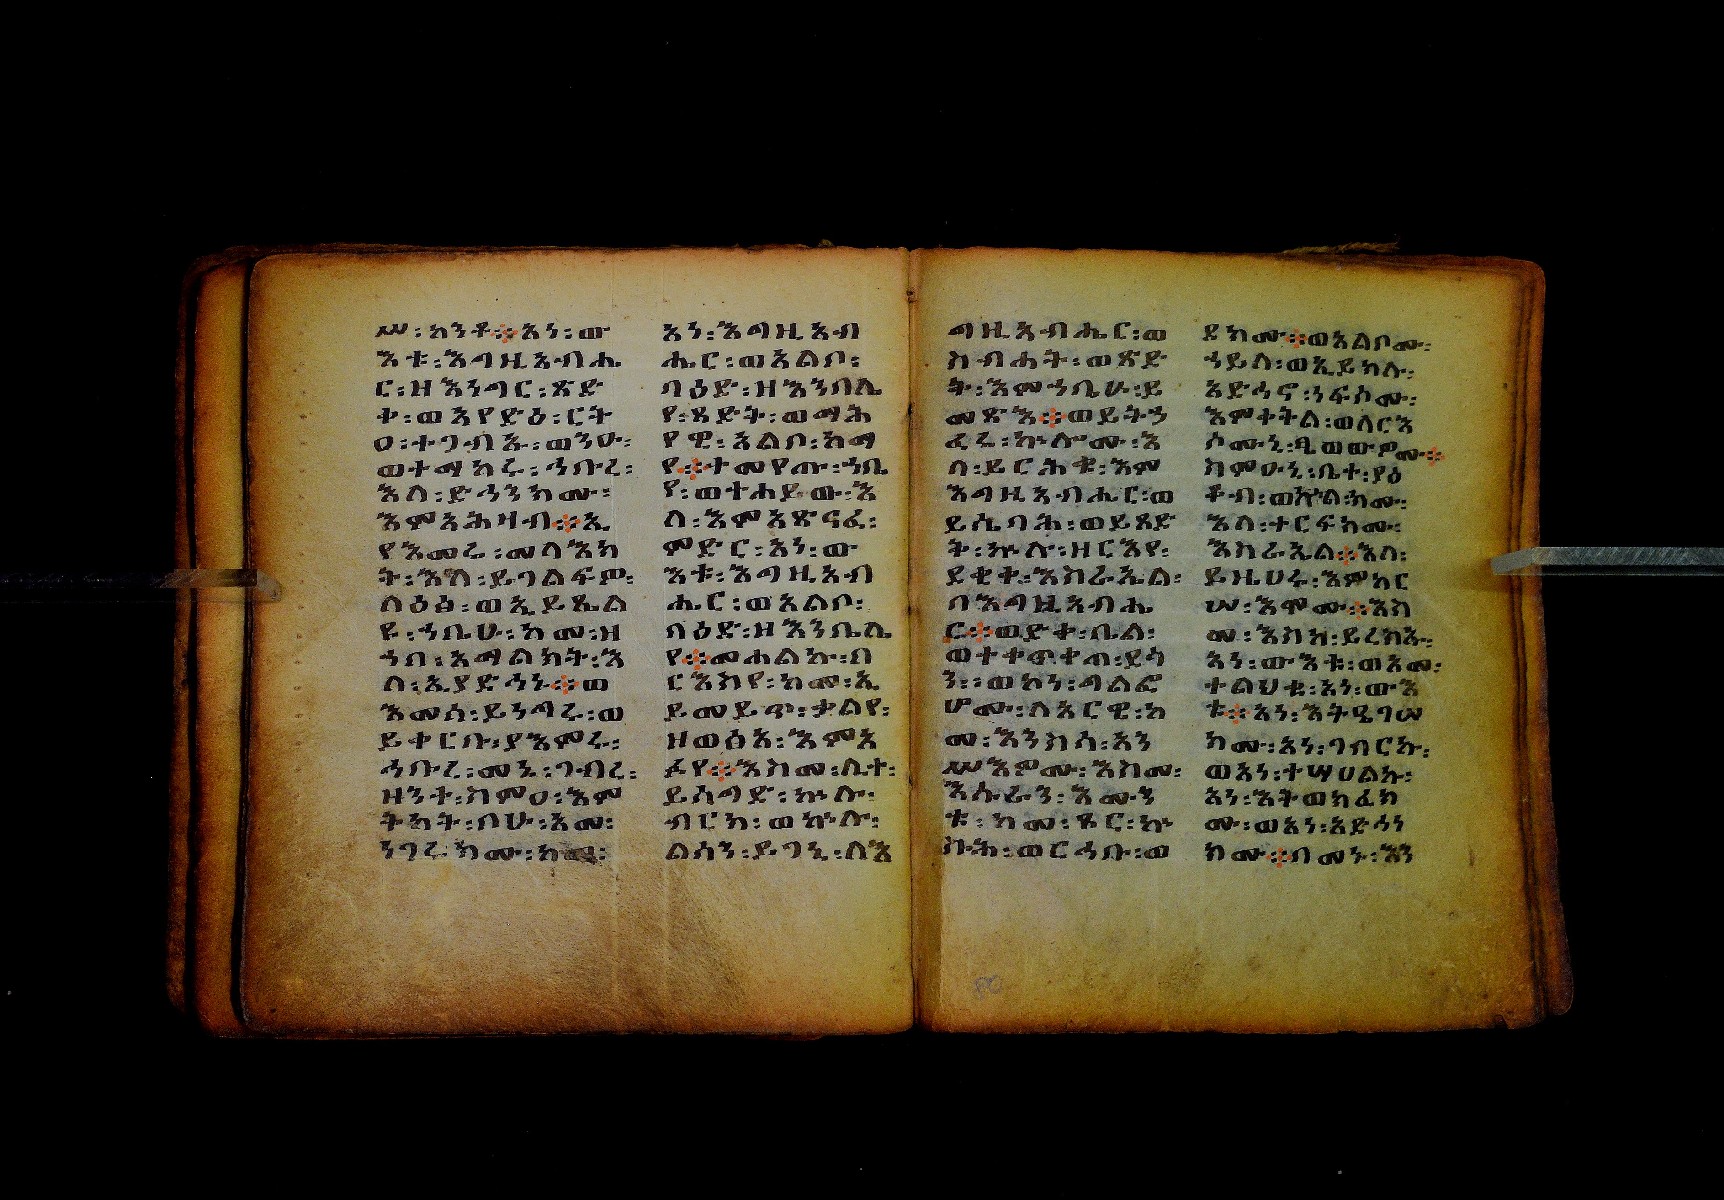 ሠ፡ከንቶ፨አነ፡ው
እቱ፡እግዚአብሔ
ር፡ዘእንግር፡ጽድ
ቀ፡ወአየድዕ፡ርት
ዐ፡ተጋብኡ፡ወንዑ፡
ወተማከሩ፡ኅቡረ፡
እለ፡ድኅንክሙ፡
እምአሕዛብ፨ኢ
የእመሩ፡መላእክ
ት፡እለ፡ይገልፍዎ፡
ለዕፅ፡ወኢይጼል
ዩ፡ኀቤሁ፡ከመ፡ዘ
ኀበ፡አማልክት፡እ
ለ፡ኢያድኅኑ፨ወ
እመሰ፡ይንግሩ፡ወ
ይቀርቡ፡ያእምሩ፡
ኅቡረ፡መኑ፡ገብረ፡
ዘንተ፡ስምዐ፡እም
ትካት፡በሁ፡አመ፡
ነገሩክሙ፡ከመ፡
አነ፡እግዚአብ
ሔር፡ወአልቦ፡
ባዕድ፡ዘእንበሌ
የ፡ጻድቅ፡ወማሕ
የዊ፡አልቦ፡ከማ
የ፨ተመየጡ፡ኀቤ
የ፡ወተሐይው፡እ
ለ፡እምአጽናፈ፡
ምድር፡አነ፡ው
እቱ፡እግዚአብ
ሔር፡ወአልቦ፡
ባዕድ፡ዘእንበሌ
የ፨መሐልኩ፡በ
ርእስየ፡ከመ፡ኢ
ይመይጥ፡ቃልየ፡
ዘወፅአ፡እምአ
ፉየ፨እስመ፡ሊተ፡
ይሰግድ፡ኵሉ፡
ብርክ፡ወኵሉ፡
ልሳን፡ይገኒ፡ለእ
ግዚአብሔር፡ወ
ስብሐት፡ወጽድ
ቅ፡እምኀቤሁ፡ይ
መጽእ፨ወይትኀ
ፈሩ፡ኵሎሙ፡እ
ለ፡ይርሕቁ፡እም
እግዚአብሔር፡ወ
ይሴባሕ፡ወይጸድ
ቅ፡ኵሉ፡ዘርእየ፡
ደቂቀ፡እስራኤል፡
በእግዚአብሔ
ር፨ወድቀ፡ቤል፡
ወተቀጥቀጠ፡ዳጎ
ን፡ወኮነ፡ግልፎ
ሆሙ፡ለአርዌ፡ከ
መ፡እንስሳ፡አን
ሥእዎሙ፡እስመ፡
እሱራን፡እሙን
ቱ፡ከመ፡ጾር፡
ወርኅቡ፡ወ
ደክሙ፨ወአልቦሙ፡
ኀይለ፡ወኢይክሉ፡
አድኅኖ፡ነፍሶሙ፡
እምቀትል፡ወለርእ
ሶሙኒ፡ፄወውዎሙ፨
ስምዑኒ፡ቤተ፡ያዕ
ቆብ፡ወኵልክሙ፡
እለ፡ተርፍክሙ፡
እስራኤል፨እለ፡
ይዜሀሩ፡እምከር
ሠ፡እሞሙ፡እስ
መ፡እስከ፡ይረስኡ፡
አነ፡ውእቱ፡ወእመ፡
ተልህቁ፡አነ፡ውእ
ቱ፨አነ፡እትዔገሠ
ክሙ፡አነ፡ገበርኩ፡
ወአነ፡ተሣሀልኩ፡
አነ፡እትወከፈክ
ሙ፡ወአነ፡አድኅነ
ክሙ፨በመኑ፡እን